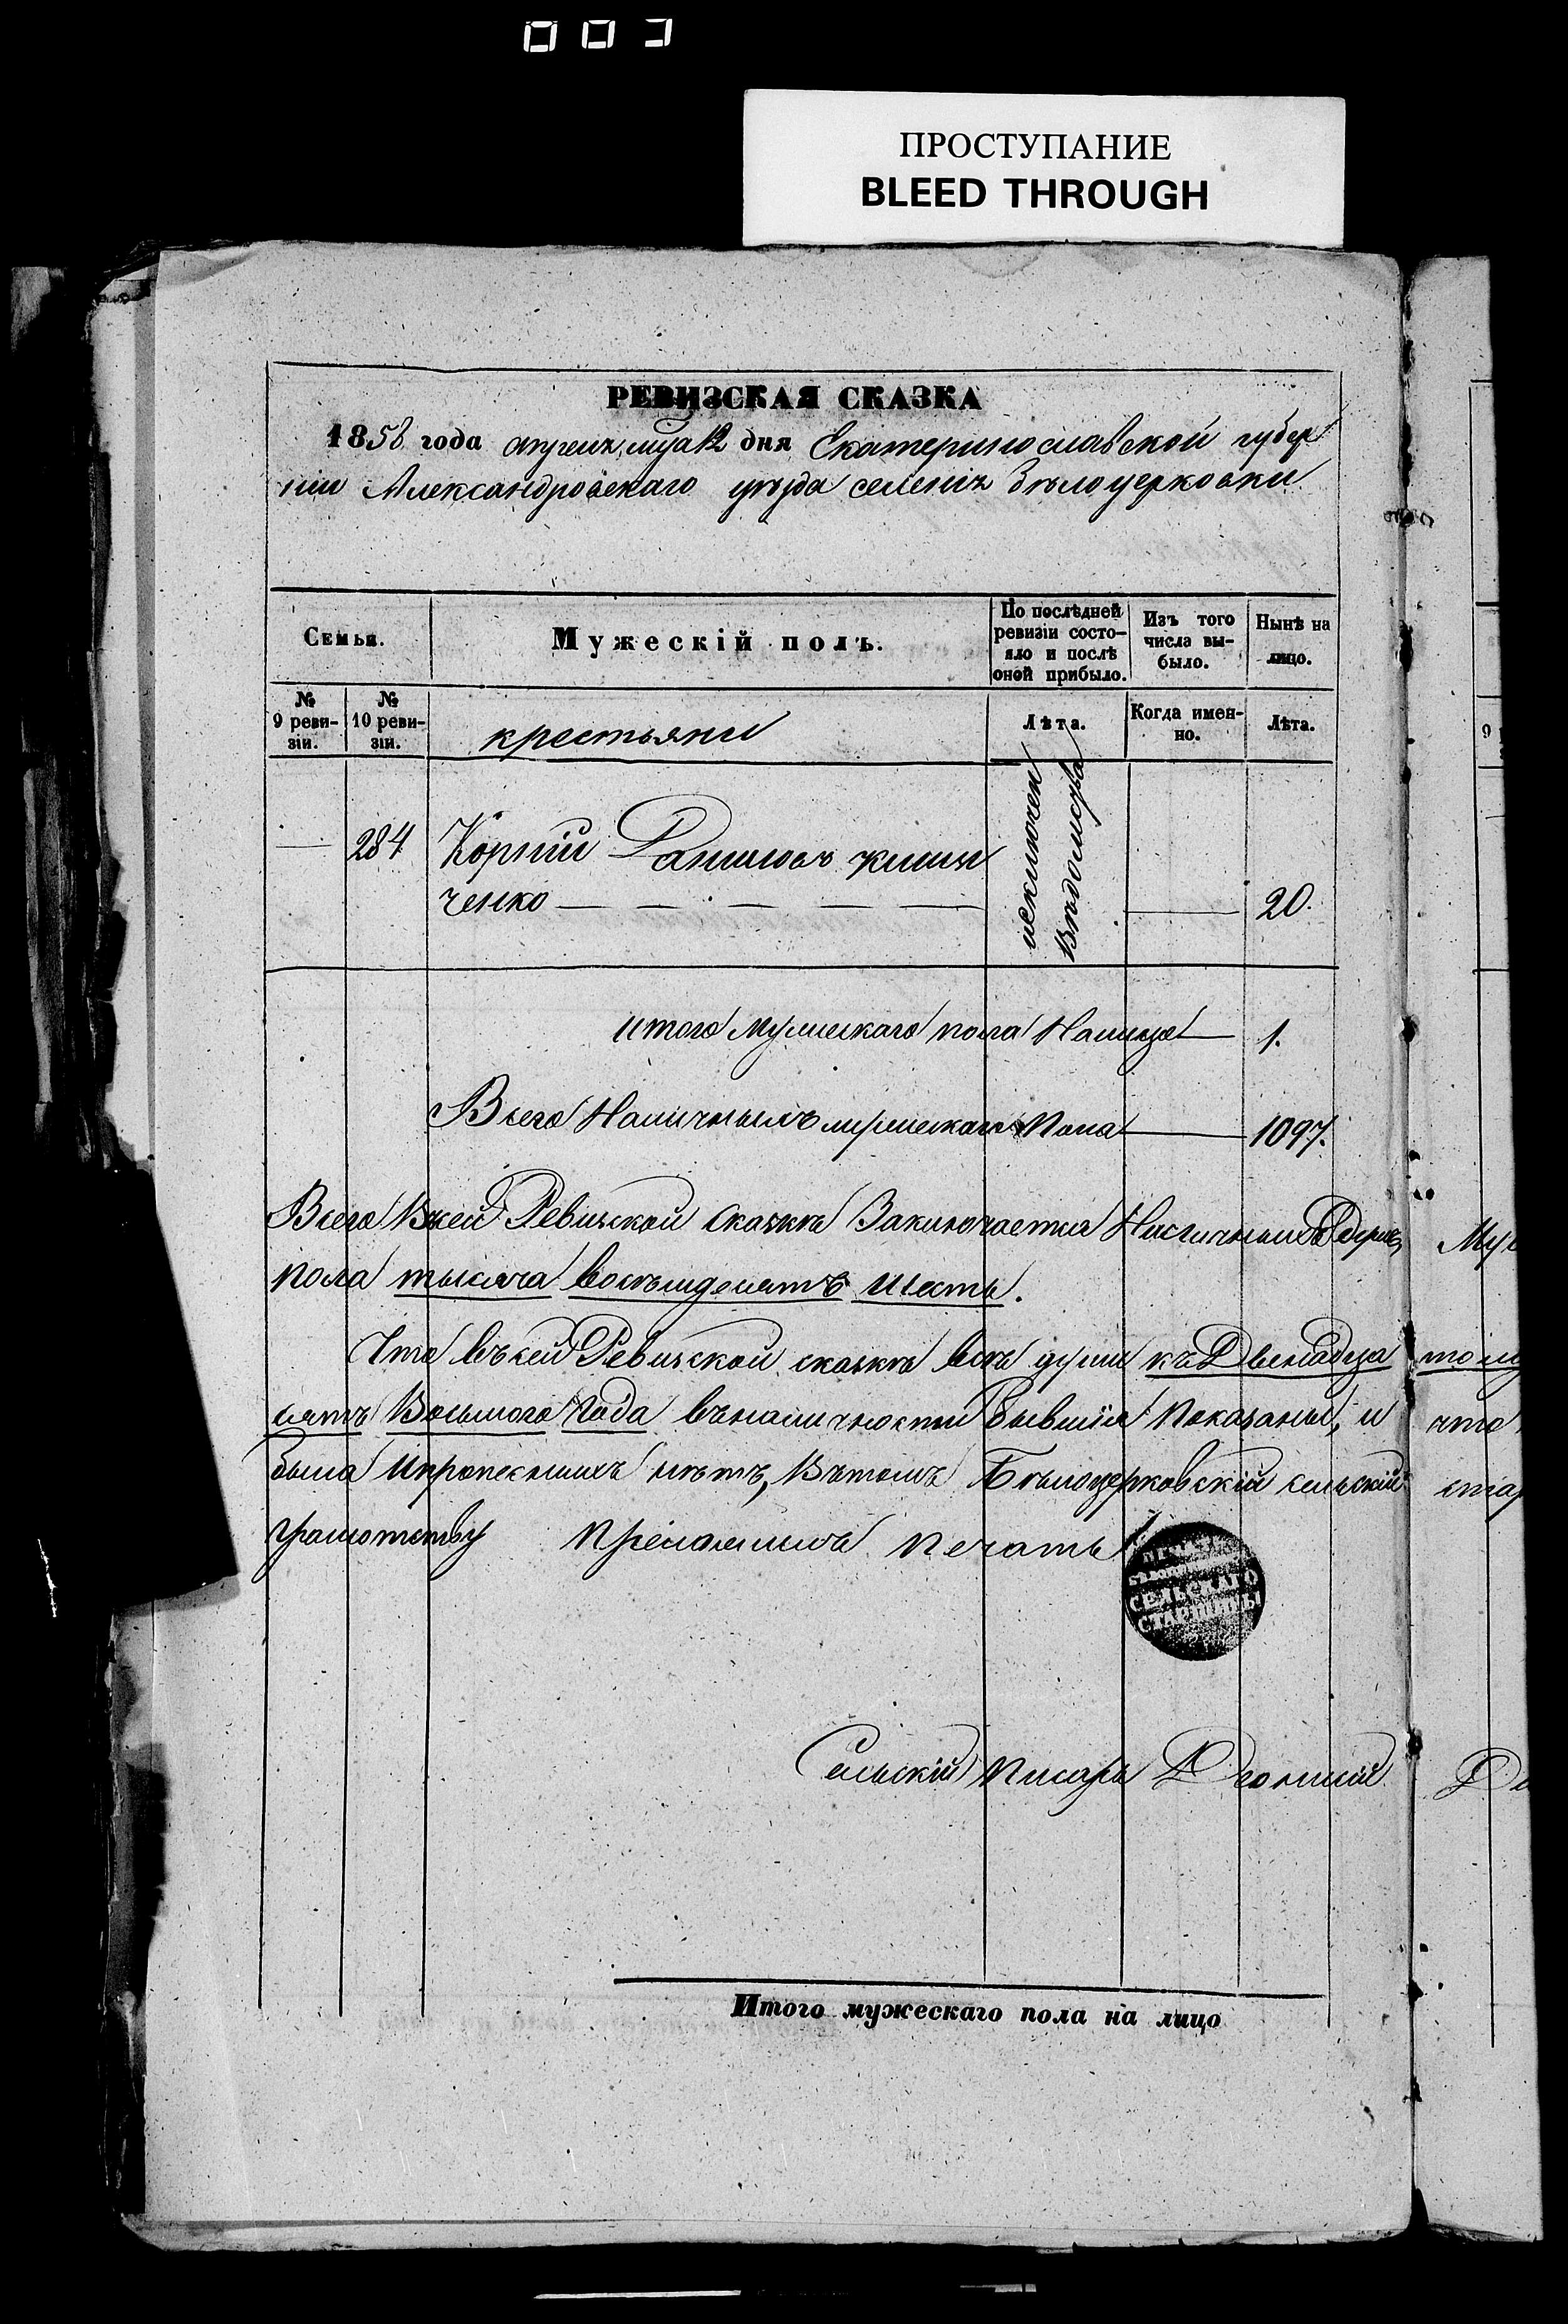 003
ПРОСТУПАНИЕ
BLEED THROUGH
РЕВИЗСКАЯ СКАЗКА
1858 года апреля мца 12 дня Екатеринославской губер
ніи Александровскаго уѣзда селенія Бѣлоцерковки
Семьи.
Мужескій полъ.
По послѣдней ревизіи состо-
яло и послѣ
оной прибыло.
Изъ того
числа вы-
было.
Нынѣ на
лицо.
№
9 реви-
зіи.
№
10 реви-
зіи.
крестьяни
Лѣта.
Когда имен-
но.
Лѣта.
— 284 Корній Даниловъ
ченко — — — — 20.
исключен
итого мужескаго пола Налицо — 1.
Всего Наличныхъ мужескаго Пола — 1097.
Всего Всей Ревизской сказкѣ Заключается Наличныхъ
пола тысяча восемьдесятъ шесть.
Что въсей Ревизской сказкѣ всѣ души къ Двенадца
сятъ Восьмого Года въналичности бывшія Показаны, и
была Ипропесныхъ нѣтъ, Вътомъ Бѣлоцерковскій сельскій
Грамотству Печать
СЕЛЬСКАГО
СТАРШИНЫ
Сельскій Писарь
Итого мужескаго пола на лицо